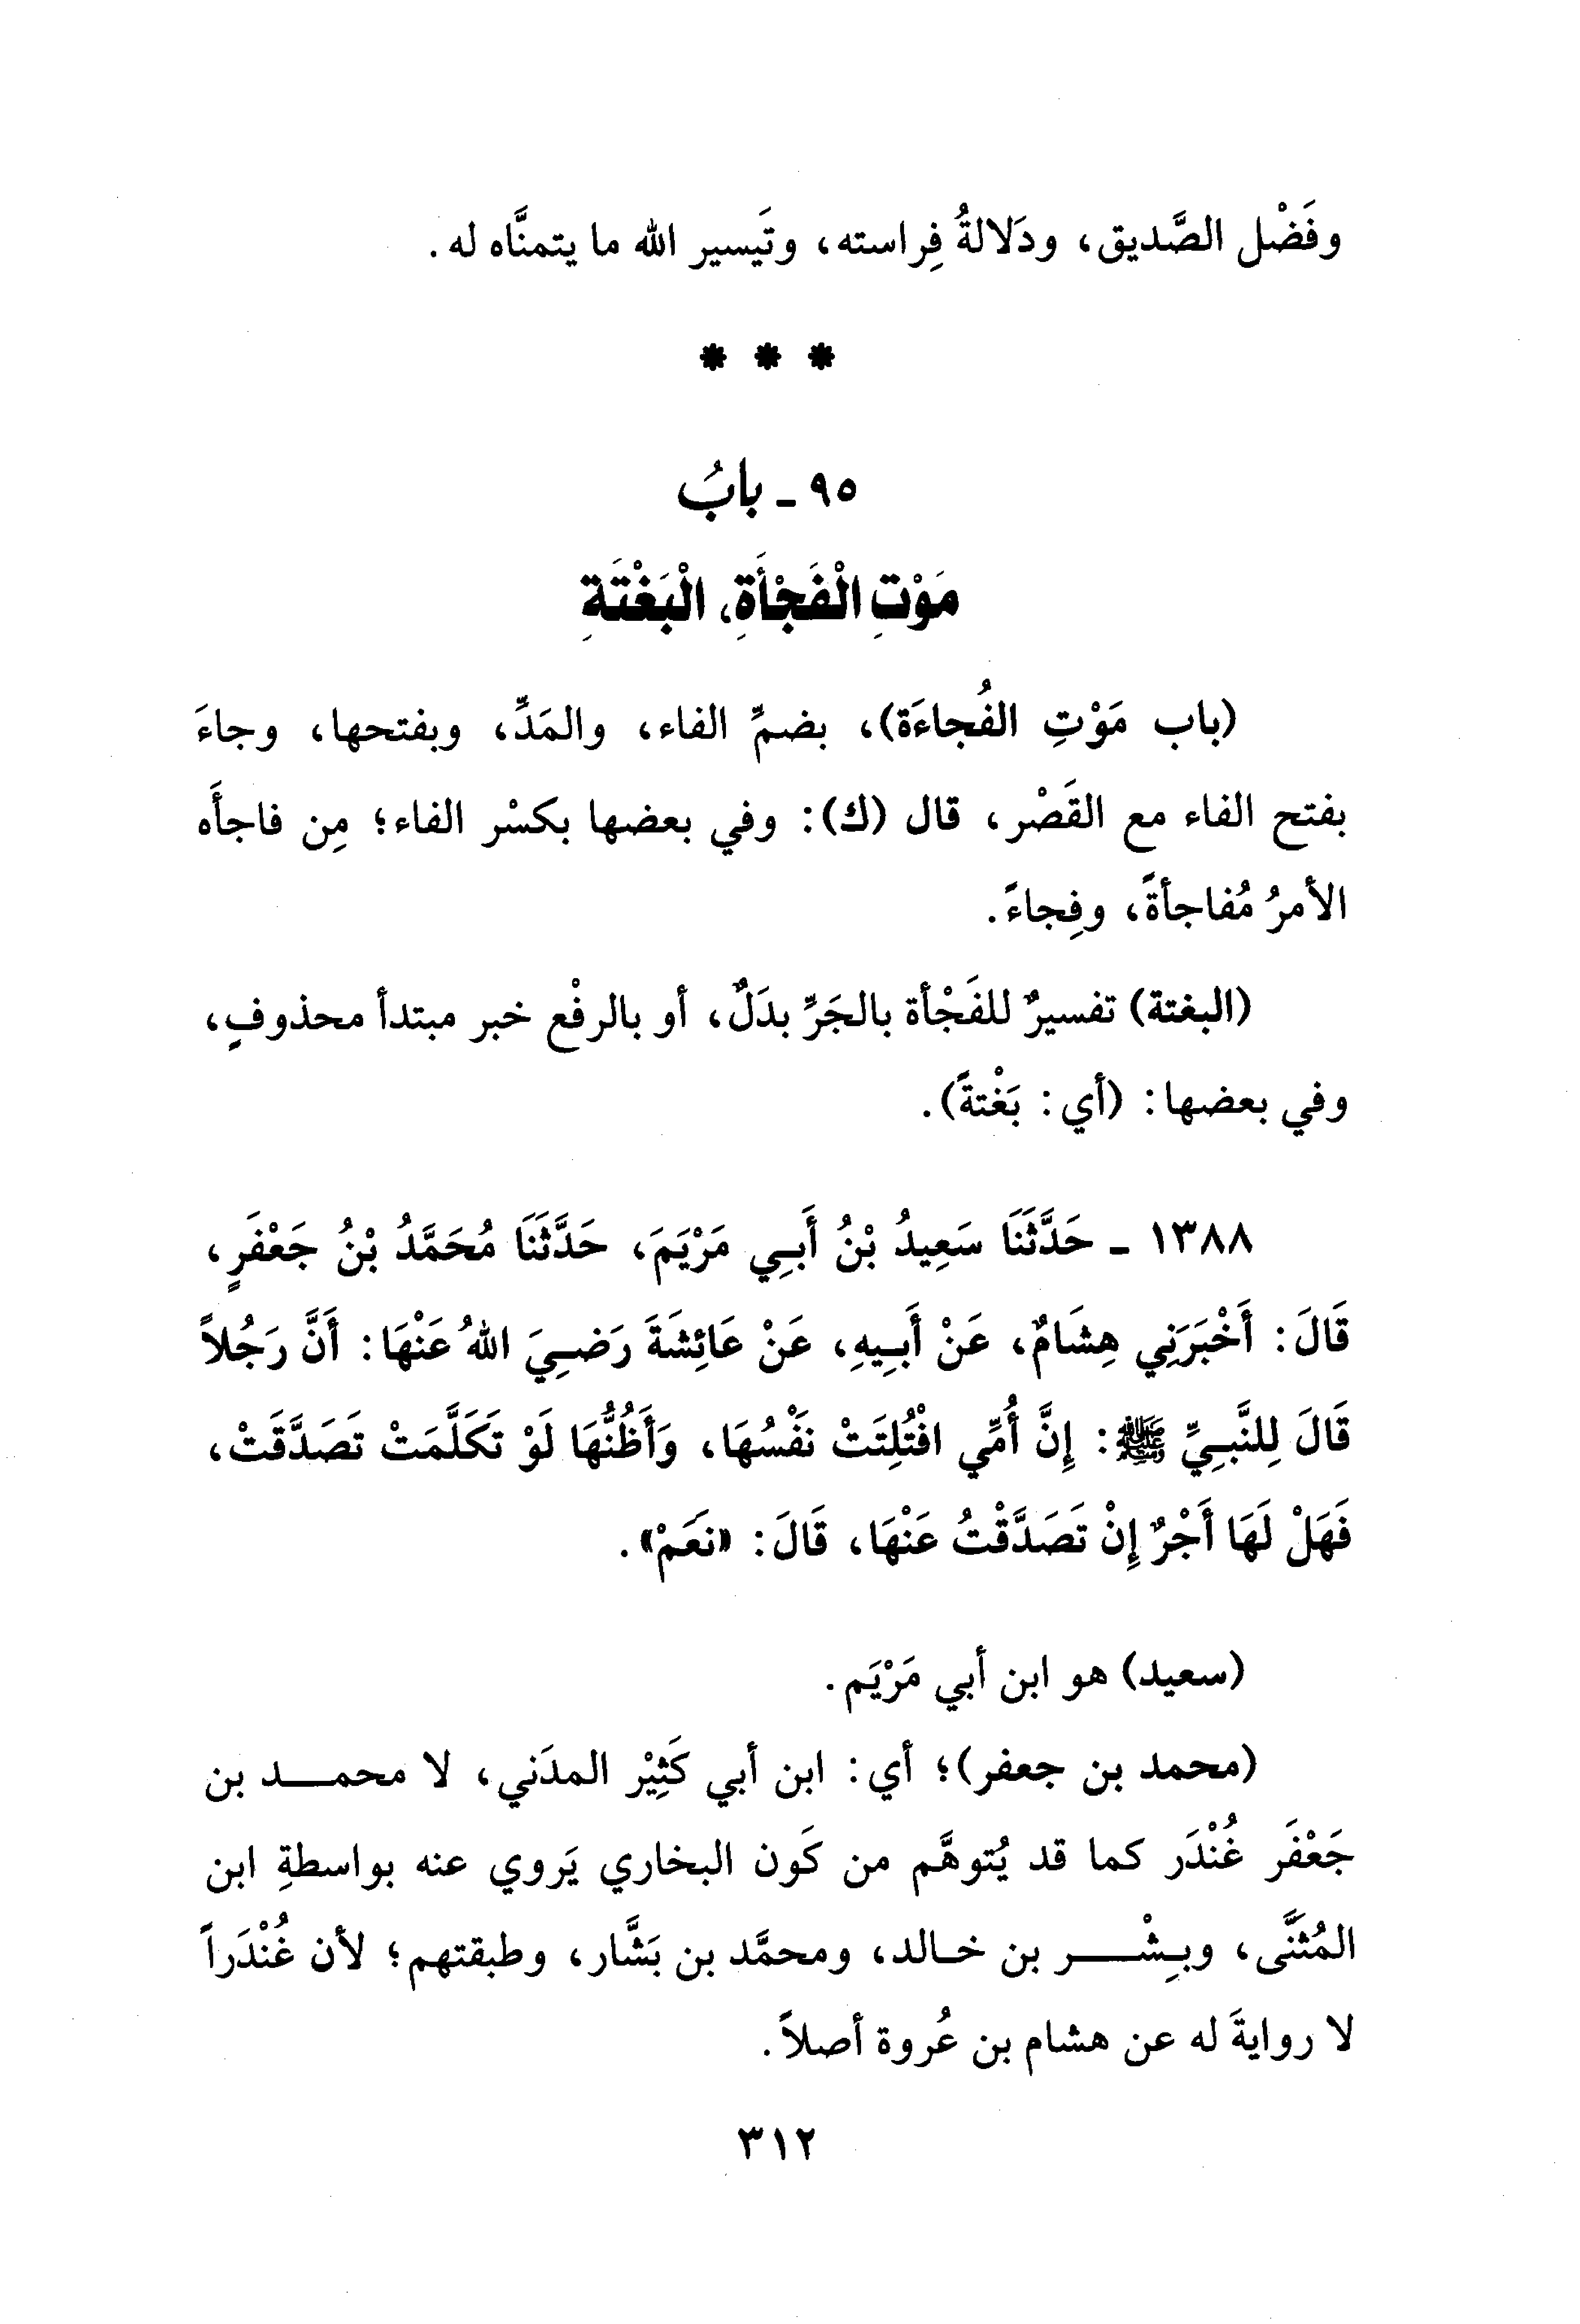 وفَضْل الصَّديق، ودَلالةُ فِراسته، وتَيسير الله ما يتمنَّاه له.
* * *
٩٥ ـ بابُ
مَوْتِ الْفَجْأَةِ، الْبَغْتَةِ
(باب مَوْتِ الفُجاءَة)، بضمِّ الفاء، والمَدِّ، وبفتحها، وجاءَ
بفتح الفاء مع القَصْر، قال (ك): وفي بعضها بكسْر الفاء؛ مِن فاجأَه
الأمرُ مُفاجأةً، وفِجاءً.
(البغتة) تفسيرٌ للفَجْأة بالجَرِّ بدَلٌ، أو بالرفْع خبر مبتدأ محذوفٍ،
وفي بعضها: (أي: بَغْتةً).
١٣٨٨ ـ حَدَّثَنَا سَعِيدُ بْنُ أَبِي مَرْيَمَ، حَدَّثَنَا مُحَمَّدُ بْنُ جَعْفَرٍ،
قَالَ: أَخْبَرَنِي هِشَامٌ، عَنْ أَبِيهِ، عَنْ عَائِشَةَ رَضِيَ اللهُ عَنْهَا: أَنَّ رَجُلاً
قَالَ لِلنَّبِيِّ ﷺ: إِنَّ أُمِّي افْتُلِتَتْ نَفْسُهَا، وَأَظُنُّهَا لَوْ تَكَلَّمَتْ تَصَدَّقَتْ،
فَهَلْ لَهَا أَجْرٌ إِنْ تَصَدَّقْتُ عَنْهَا، قَالَ: «نَعَمْ».
(سعيد) هو ابن أبي مَرْيَم.
(محمد بن جعفر)؛ أي: ابن أبي كَثِيْر المدَني، لا محمد بن
جَعْفَر غُنْدَر كما قد يُتوهَّم من كَون البخاري يَروي عنه بواسطةِ ابن
المُثَنَّى، وبِشْر بن خالد، ومحمَّد بن بَشَّار، وطبقتهم؛ لأن غُنْدَراً
لا روايةَ له عن هشام بن عُروة أصلاً.
٣١٢